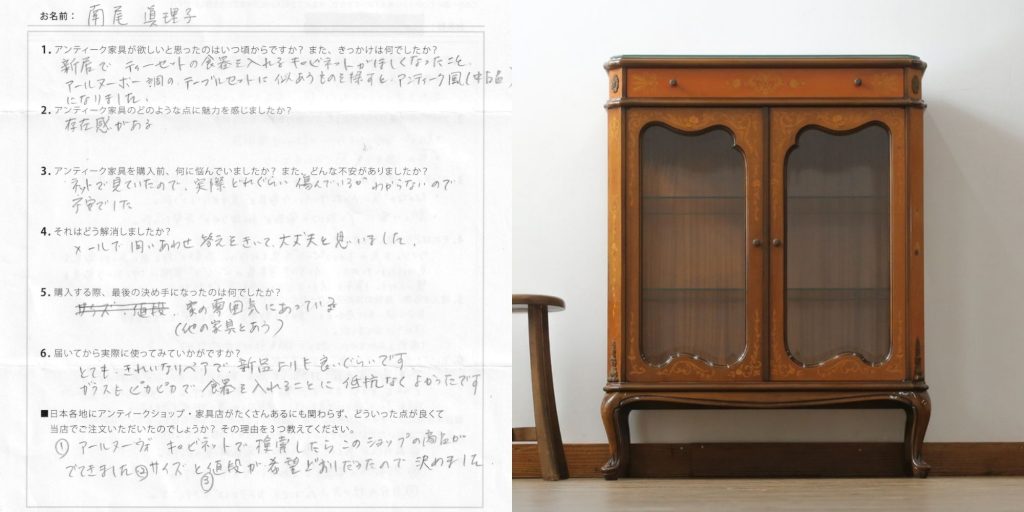 お名前： 南尾 眞理子
1. アンティーク家具が欲しいと思ったのはいつ頃からですか？ また、きっかけは何でしたか？
新居で ティーセットの食器を入れるキャビネットがほしくなったこと、
アールヌーボー調の、テーブルセットに似あうものを探すと、アンティーク風(中古品)
になりました。
2. アンティーク家具のどのような点に魅力を感じましたか？
存在感がある
3. アンティーク家具を購入前、何に悩んでいましたか？ また、どんな不安がありましたか？
ネットで見ていたので、実際どれぐらい傷んでいるか わからないので
不安でした
4. それはどう解消しましたか？
メールで 問いあわせ 答えをきいて、大丈夫と思いました。
5. 購入する際、最後の決め手になったのは何でしたか？
サイズ・値段、家の雰囲気にあっている
(他の家具とあう)
6. 届いてから実際に使ってみていかがですか？
とても きれいなリペアで 新品よりも良いぐらいです
ガラスもピカピカで 食器を入れることに 抵抗なくよかったです
■日本各地にアンティークショップ・家具店がたくさんあるにも関わらず、どういった点が良くて
当店でご注文いただいたのでしょうか？ その理由を３つ教えてください。
① アールヌーヴォ キャビネットで 検索したら このショップの商品が
でてきました ②サイズ と ③値段が 希望どおりだったので 決めました